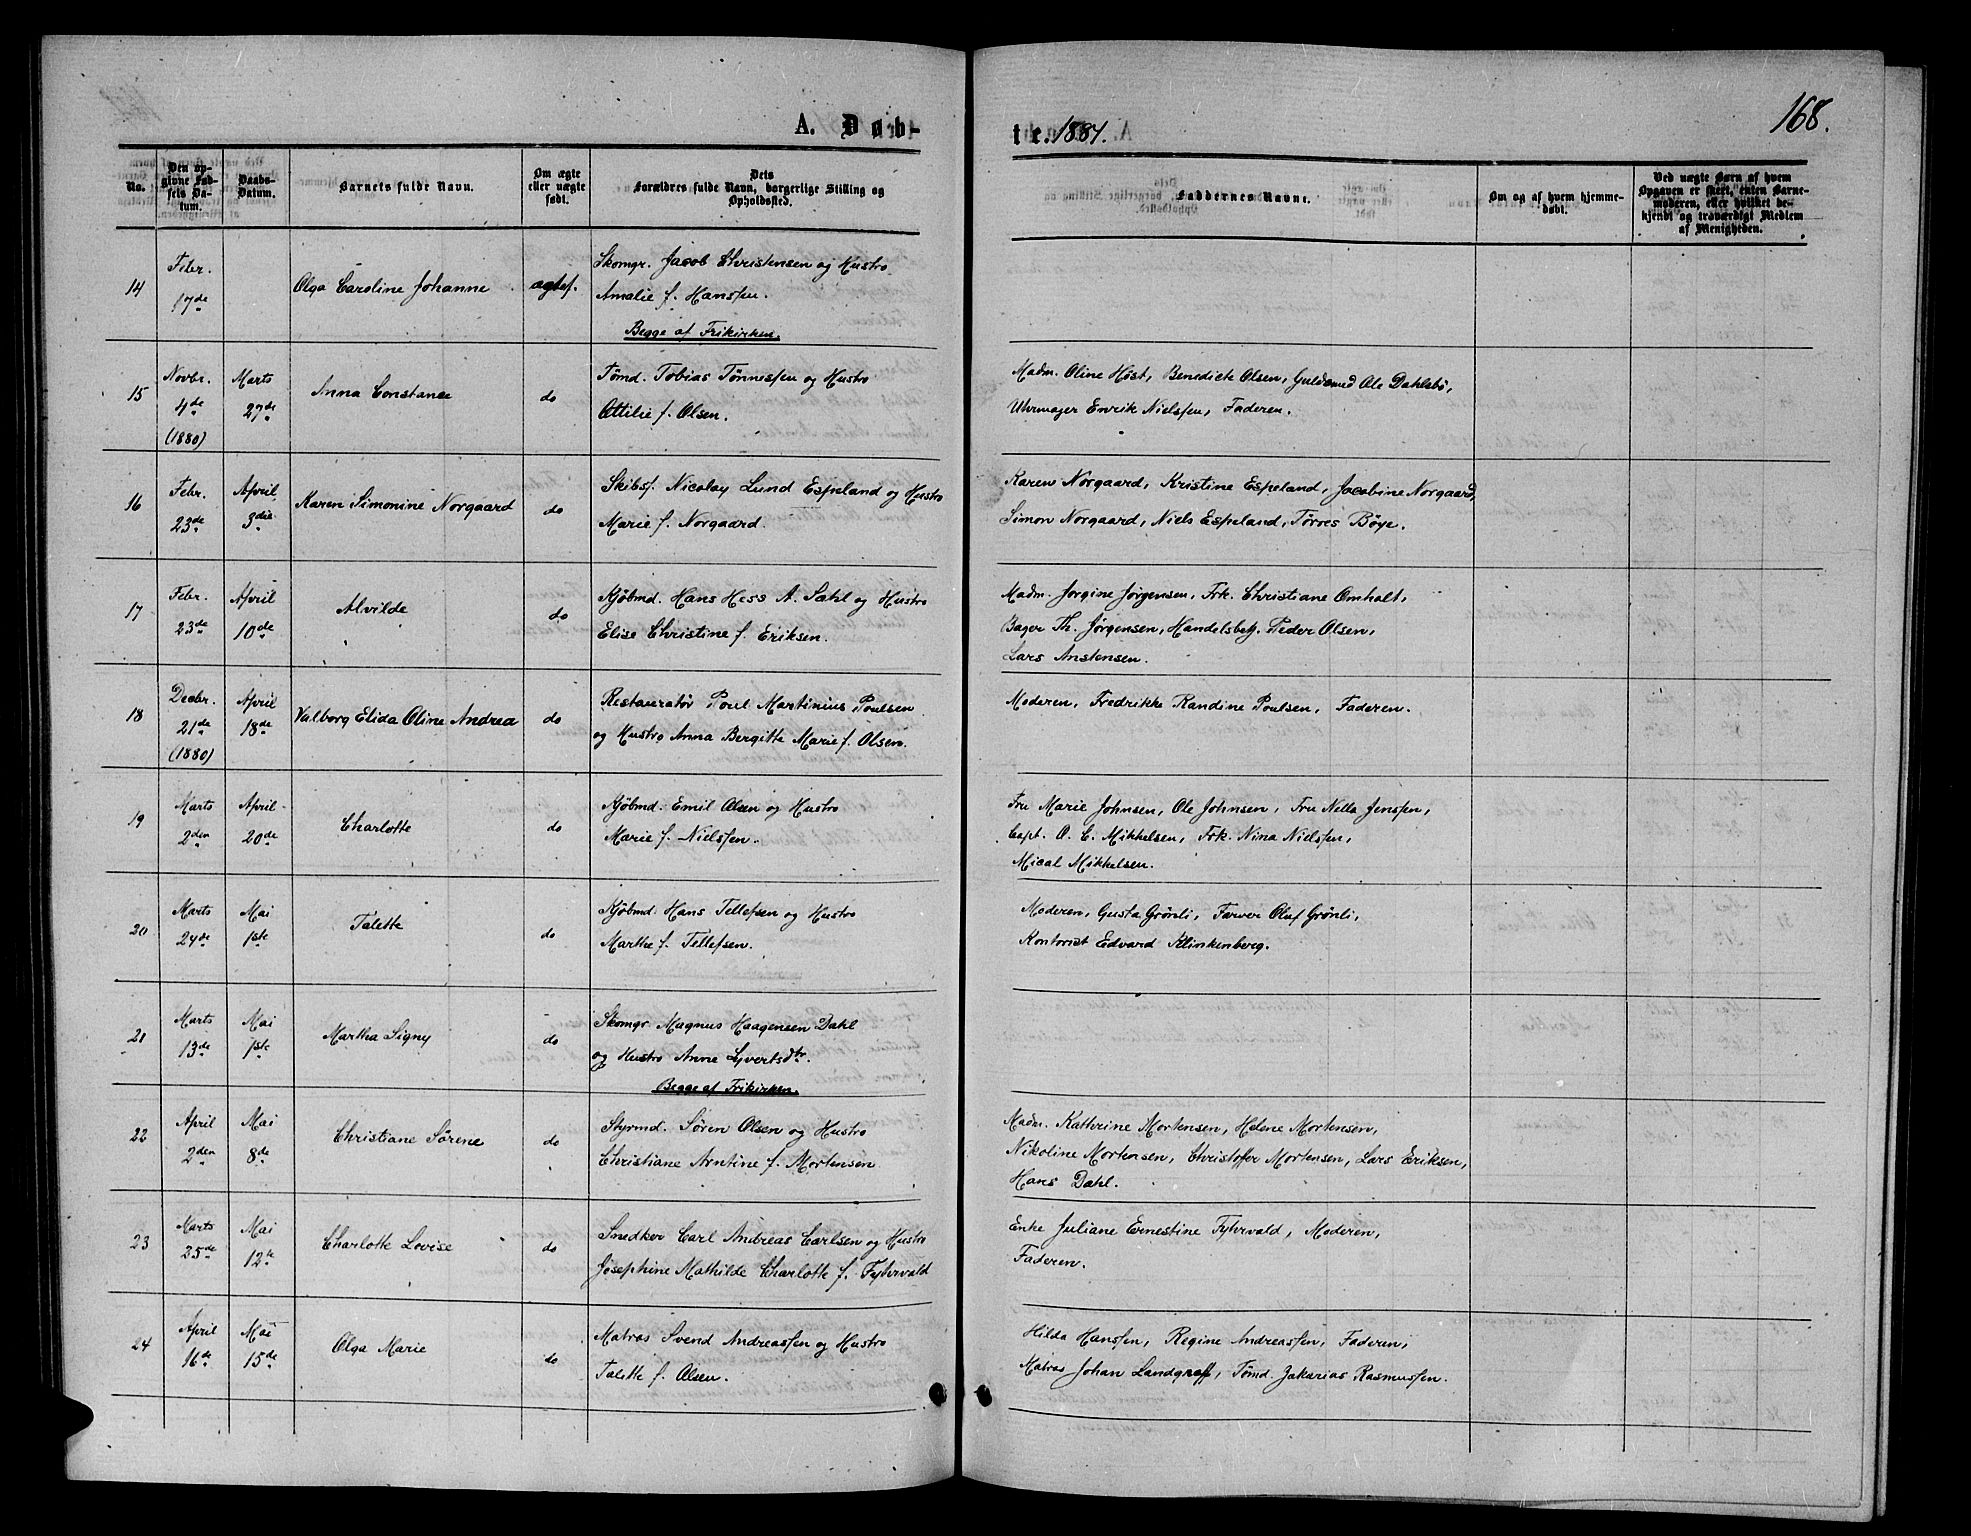 168.
A. Døb-
te. 1881.
No.
Den op-
givne Fød-
sels Da-
tum.
Daabs-
Datum.
Barnets fulde Navn.
Om ægte
eller uægte
født.
Dets
Forældres fulde Navn, borgerlige Stilling og
Opholdssted.
Faddernes Navne.
Om og af hvem hjemme-
døbt.
Ved uægte Børn af hvem
Opgaven er skeet, enten Barne-
moderen, eller hvilket be-
kjendt og troværdigt Medlem
af Menigheden.
14
Febr.
17de
Olga Caroline Johanne
ægtef.
Skomgr. Jacob Christensen og Hustro
Amalie f. Hanssen.
Begge af Frikirken.
15
Novbr.
4de
(1880)
Marts
27de
Anna Constance
do
Tømd. Tobias Tønnessen og Hustro
Ottilie f. Olsen.
Madm. Oline Høst, Benedicte Olsen, Guldsmed Ole Dahlsbø,
Uhrmager Enrik Nielssen, Faderen.
16
Febr.
23de
April
3die
Karen Simonine Norgaard
do
Skibsf. Nicolay Lund Espeland og Hustro
Marie f. Norgaard.
Karen Norgaard, Kristine Espeland, Jacobine Norgaard,
Simon Norgaard, Niels Espeland, Tørres Bøye.
17
Febr.
23de
April
10de
Alvilde
do
Kjøbmd. Hans Hess A. Sahl og Hustro
Elise Christine f. Eriksen.
Madm. Jørgine Jørgensen, Frk. Christiane Omholt,
Bager Th. Jørgensen, Handelsbetj. Peder Olsen,
Lars Anstensen.
18
Decbr.
21de
(1880)
April
18de
Valborg Elida Oline Andrea
do
Restauratør Poul Martinius Poulsen
og Hustro Anna Bergitte Marie f. Olsen.
Moderen, Fredrikke Randine Poulsen, Faderen.
19
Marts
2den
April
20de
Charlotte
do
Kjøbmd. Emil Olsen og Hustro
Marie f. Nielssen.
Fru Marie Johnsen, Ole Johnsen, Fru Nella Jenssen,
Capt. O. C. Mikkelsen, Frk. Nina Nielssen,
Mical Mikkelsen.
20
Marts
24de
Mai
1ste
Talette
do
Kjøbmd. Hans Tellefsen og Hustro
Marthe f. Tellefsen.
Moderen, Gusta Grønli, Farver Oluf Grønli,
Kontorist Edvard Klinkenberg.
21
Marts
13de
Mai
1ste
Martha Signy
do
Skomgr. Magnus Haagensen Dahl
og Hustro Anne Syvertsdtr.
Begge af Frikirken.
22
April
2den
Mai
8de
Christiane Sørene
do
Styrmd. Søren Olsen og Hustro
Christiane Arntine f. Mortensen
Madm. Kathrine Mortensen, Helene Mortensen,
Nikoline Mortensen, Christoffer Mortensen, Lars Eriksen,
Hans Dahl.
23
Marts
25de
Mai
12te
Charlotte Lovise
do
Snedker Carl Andreas Carlsen og Hustro
Josephine Mathilde Charlotte f. Fyhrvald
Enke Juliane Ernestine Fyhrvald, Moderen,
Faderen.
24
April
16de
Mai
15de
Olga Marie
do
Matros Svend Andreassen og Hustro
Talette f. Olsen.
Hilda Hanssen, Regine Andreassen, Faderen,
Matros Johan Landgraff, Tømd. Zakarias Rasmussen.